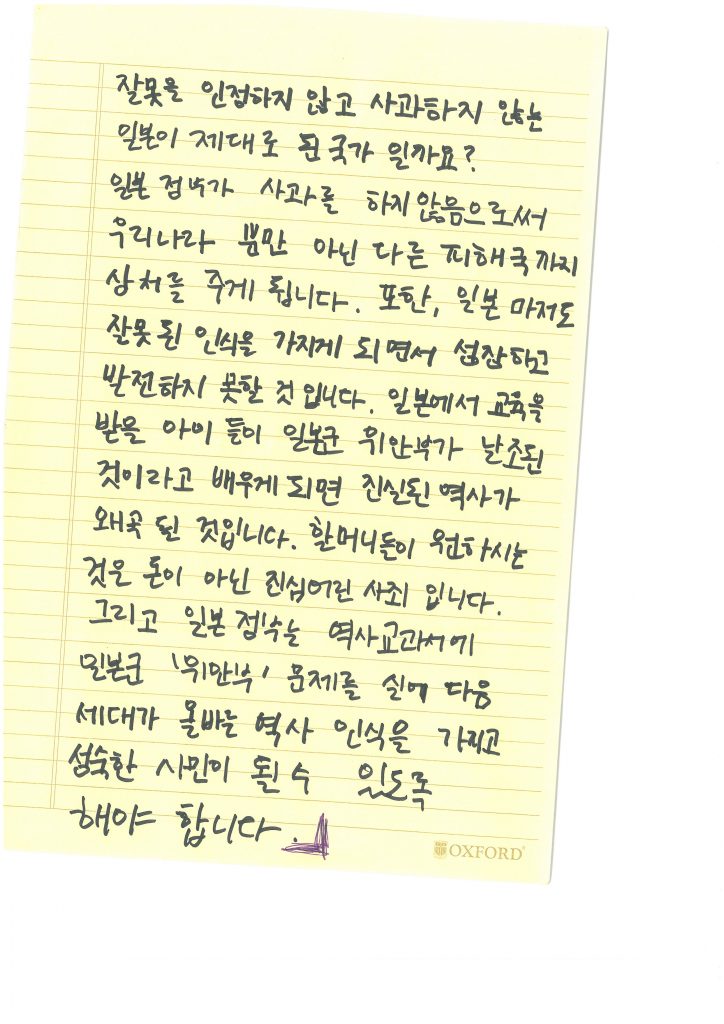 잘못을 인정하지 않고 사과하지 않는
일본이 제대로 된 국가 일까요?
일본 정부가 사과를 하지 않음으로써
우리나라 뿐만 아닌 다른 피해국까지
상처를 주게 됩니다. 또한, 일본 마저도
잘못 된 인식을 가지게 되면서 성장하고
발전하지 못할 것 입니다. 일본에서 교육을
받을 아이 들이 일본군 위안부가 날조된
것이라고 배우게 되면 진실된 역사가
왜곡 될 것입니다. 할머니들이 원하시는
것은 돈이 아닌 진심어린 사죄 입니다.
그리고 일본 정부는 역사교과서에
일본군 '위안부' 문제를 실어 다음
세대가 올바른 역사 인식을 가지고
성숙한 시민이 될 수 있도록
해야 합니다.
OXFORD